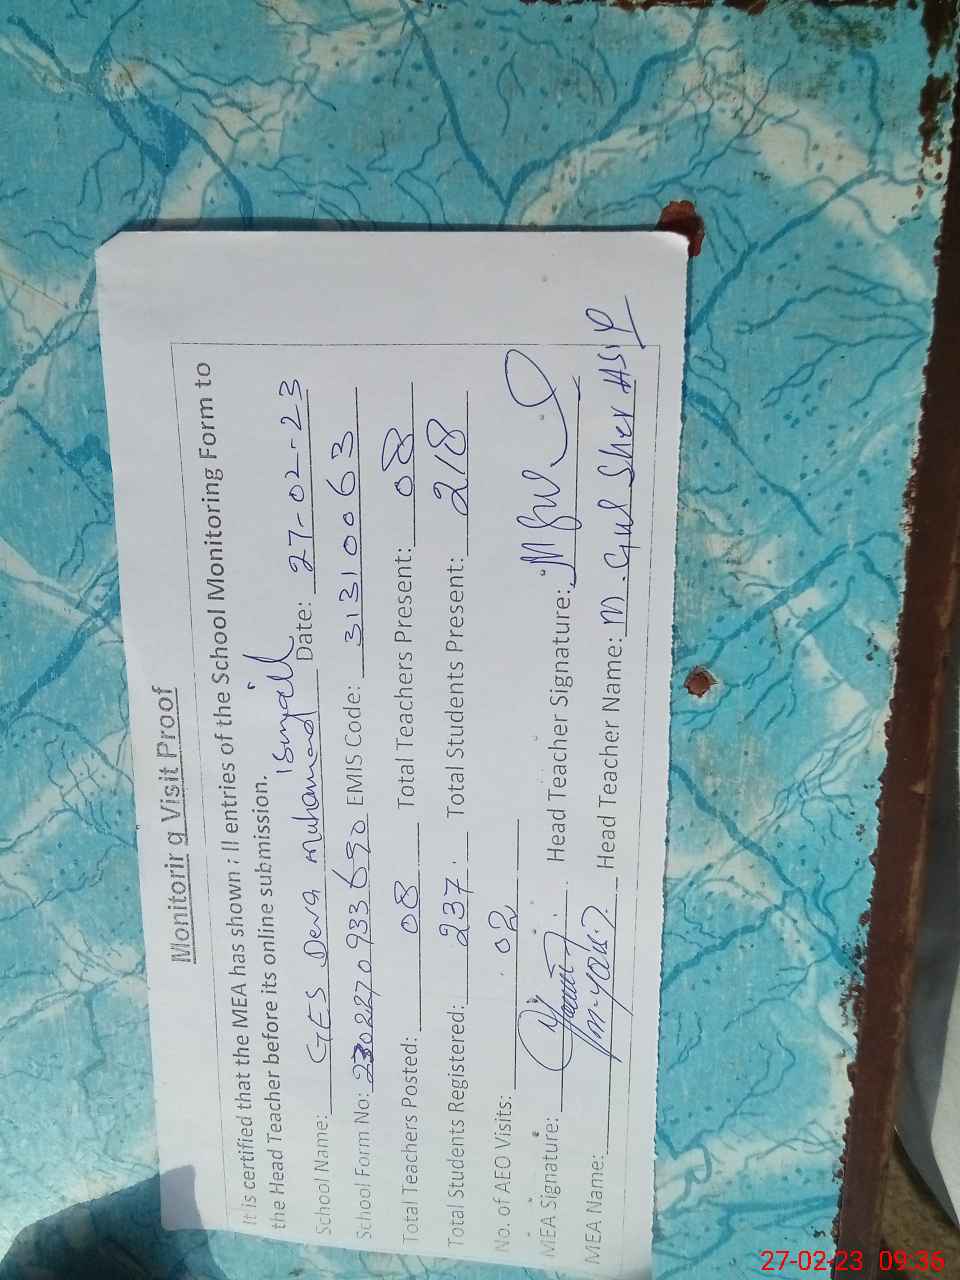 Monitorir g Visit Proof
It is certified that the MEA has shown ; ll entries of the School Monitoring Form to
the Head Teacher before its online submission.
School Name: GES Dera Muhammad Ismail Date: 27-02-23
School Form No: 230227093369 EMIS Code: 31310063
Total Teachers Posted: 08 Total Teachers Present: 08
Total Students Registered: 237 Total Students Present: 218
No. of AEO Visits: 02
MEA Signature: Head Teacher Signature:
MEA Name: Head Teacher Name: M. Gul Sher Asif
27-02-23 09:36